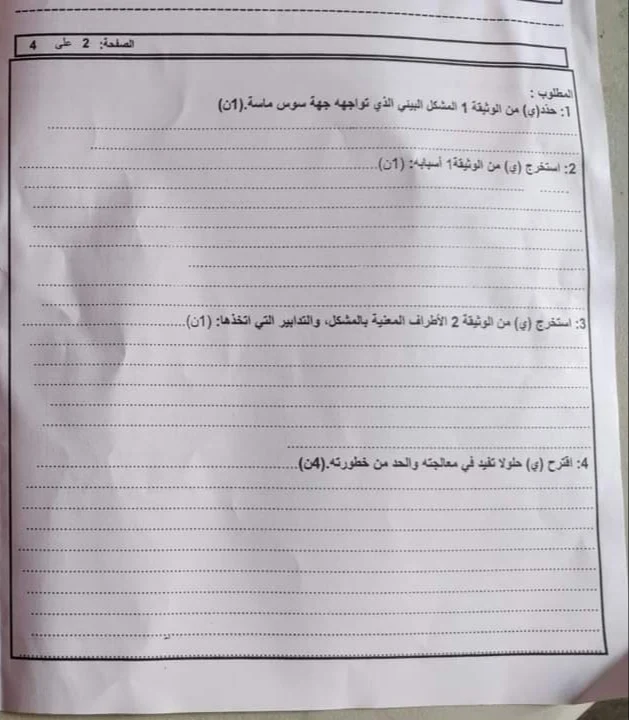 الصفحة: 2 على 4
المطلوب :
1: حدد(ي) من الوثيقة 1 المشكل البيئي الذي تواجهه جهة سوس ماسة.(1ن)
2: استخرج (ي) من الوثيقة1 أسبابه: (1ن)
3: استخرج (ي) من الوثيقة 2 الأطراف المعنية بالمشكل، والتدابير التي اتخذها: (1ن)
4: اقترح (ي) حلولا تفيد في معالجته والحد من خطورته.(4ن)